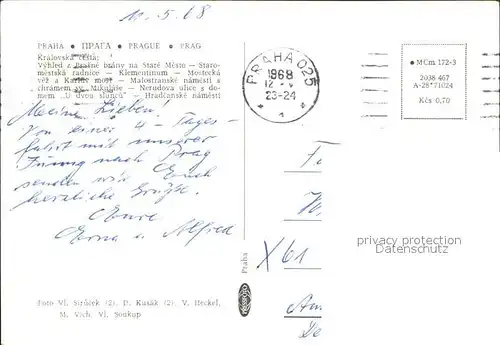 10.5.68
PRAHA • ПРАГА • PRAGUE • PRAG
Královská cesta:
Výhled z Prašné brány na Staré Město — Staro-
městská radnice — Klementinum — Mostecká
věž a Karlův most — Malostranské náměstí s
chrámem sv. Mikuláše — Nerudova ulice s do-
mem „U dvou slunců" — Hradčanské náměstí
Meine Lieben!
Von einer 4-Tages-
fahrt mit unserer
nach Prag
senden wir Euch
herzliche Grüße.
Eure
Erna u. Alfred
Foto Vl. Strůček (2), D. Kusák (2), V. Heckel,
M. Vich, Vl. Soukup
PRAHA 025
1968
12. V
23-24
1
• MCm 172-3
2038 467
A-28*71024
Kčs 0,70
Praha
X 61
privacy protection
Datenschutz